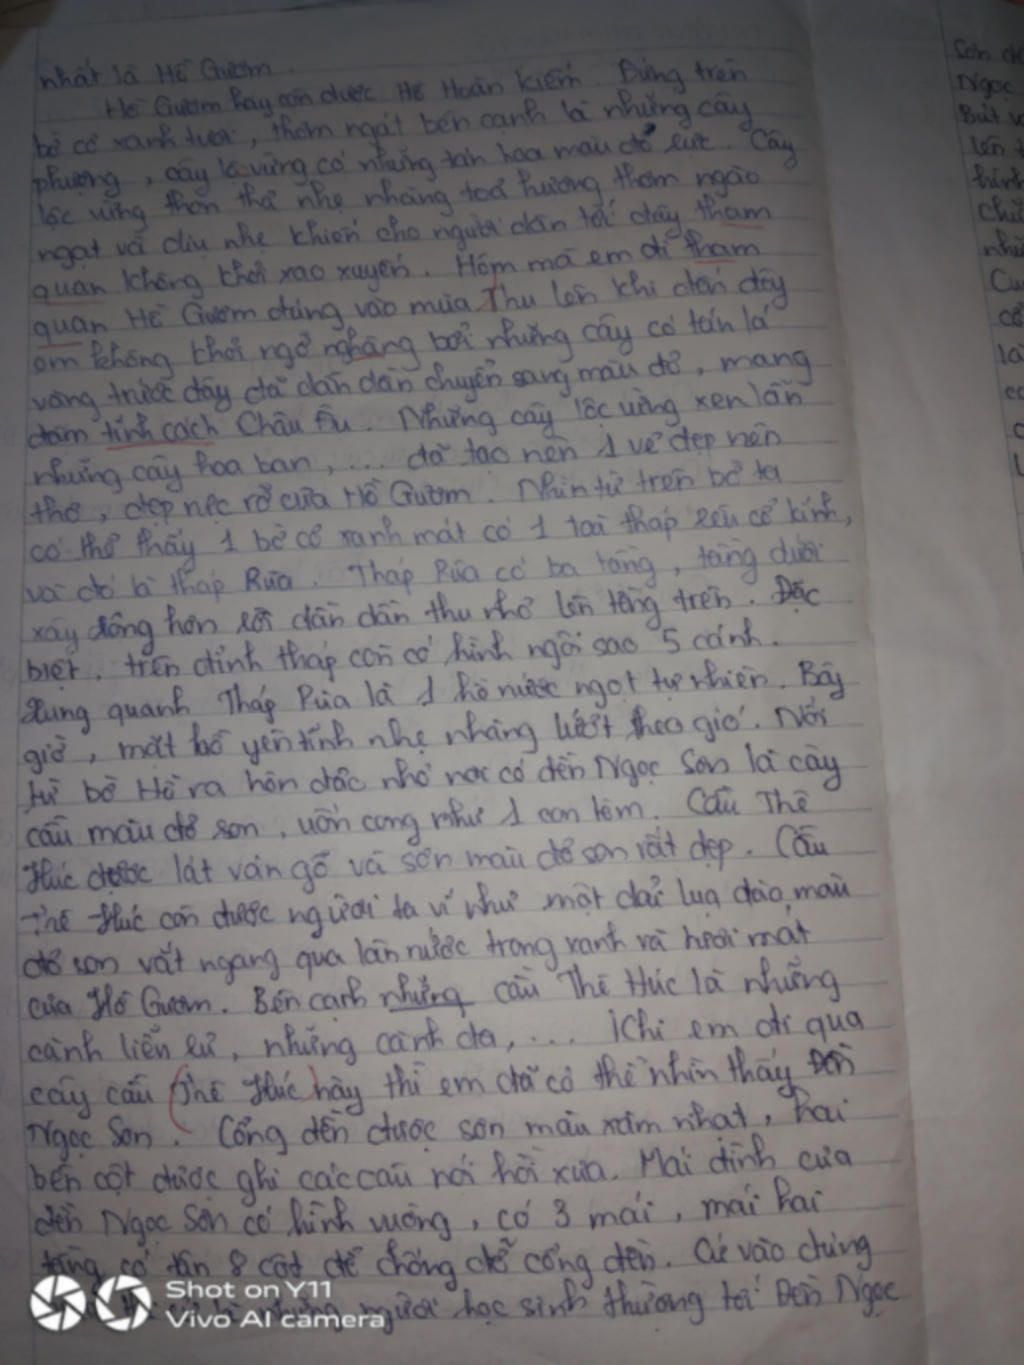 nhất là Hồ Gươm.
Hồ Gươm hay còn được Hồ Hoàn Kiếm. Đứng trên
bờ cỏ xanh tươi, thơm ngát bên cạnh là những cây
phượng, cây lộc vừng có những tán hoa màu đỏ rực. Cây
lộc vừng thon thả nhẹ nhàng toả hương thơm ngào
ngạt và dịu nhẹ khiến cho người dân tới đây tham
quan không khỏi xao xuyến. Hôm mà em đi tham
quan Hồ Gươm đúng vào mùa Thu lên khi đến đây
em không khỏi ngỡ nghàng bởi những cây có tán lá
vàng trước đây đã dần dần chuyển sang màu đỏ, mang
đậm tính cách Châu Âu. Những cây lộc vừng xen lẫn
những cây hoa ban, ... đã tạo nên 1 vẻ đẹp nên
thơ, đẹp rực rỡ của Hồ Gươm. Nhìn từ trên bờ ta
có thể thấy 1 bờ cỏ xanh mát có 1 toà tháp rêu cổ kính,
và đó là tháp Rùa. Tháp Rùa có ba tầng, tầng dưới
xây rộng hơn rồi dần dần thu nhỏ lên tầng trên. Đặc
biệt, trên đỉnh tháp còn có hình ngôi sao 5 cánh.
Xung quanh Tháp Rùa là 1 hồ nước ngọt tự nhiên. Bây
giờ, mặt hồ yên tĩnh nhẹ nhàng lướt theo gió. Nối
từ bờ Hồ ra hòn đảo nhỏ nơi có đền Ngọc Sơn là cây
cầu màu đỏ son, uốn cong như 1 con tôm. Cầu Thê
Húc được lát ván gỗ và sơn màu đỏ son rất đẹp. Cầu
Thê Húc còn được người ta ví như một dải lụa đào, màu
đỏ son vắt ngang qua làn nước trong xanh và tươi mát
của Hồ Gươm. Bên cạnh những cầu Thê Húc là những
cành liễu rủ, những cành đa, ... Khi em đi qua
cây cầu Thê Húc này thì em đã có thể nhìn thấy Đền
Ngọc Sơn. Cổng đền được sơn màu xám nhạt, hai
bên cột được ghi các câu nói hồi xưa. Mái đình của
đền Ngọc Sơn có hình vuông, có 3 mái, mái hai
tầng có tận 8 cột để chống đỡ cổng đền. Cứ vào đúng
những người học sinh thường tới Đền Ngọc
Shot on Y11
Vivo AI camera
Sơn
Ngọc
Bút